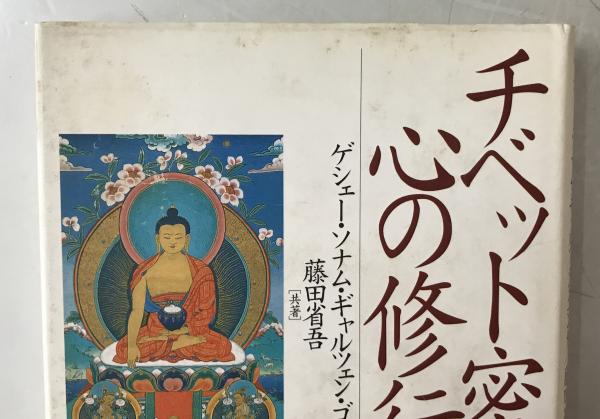 チベット密
心の修行
ゲシェー・ソナム・ギャルツェン・ゴ
藤田省吾
[共著]